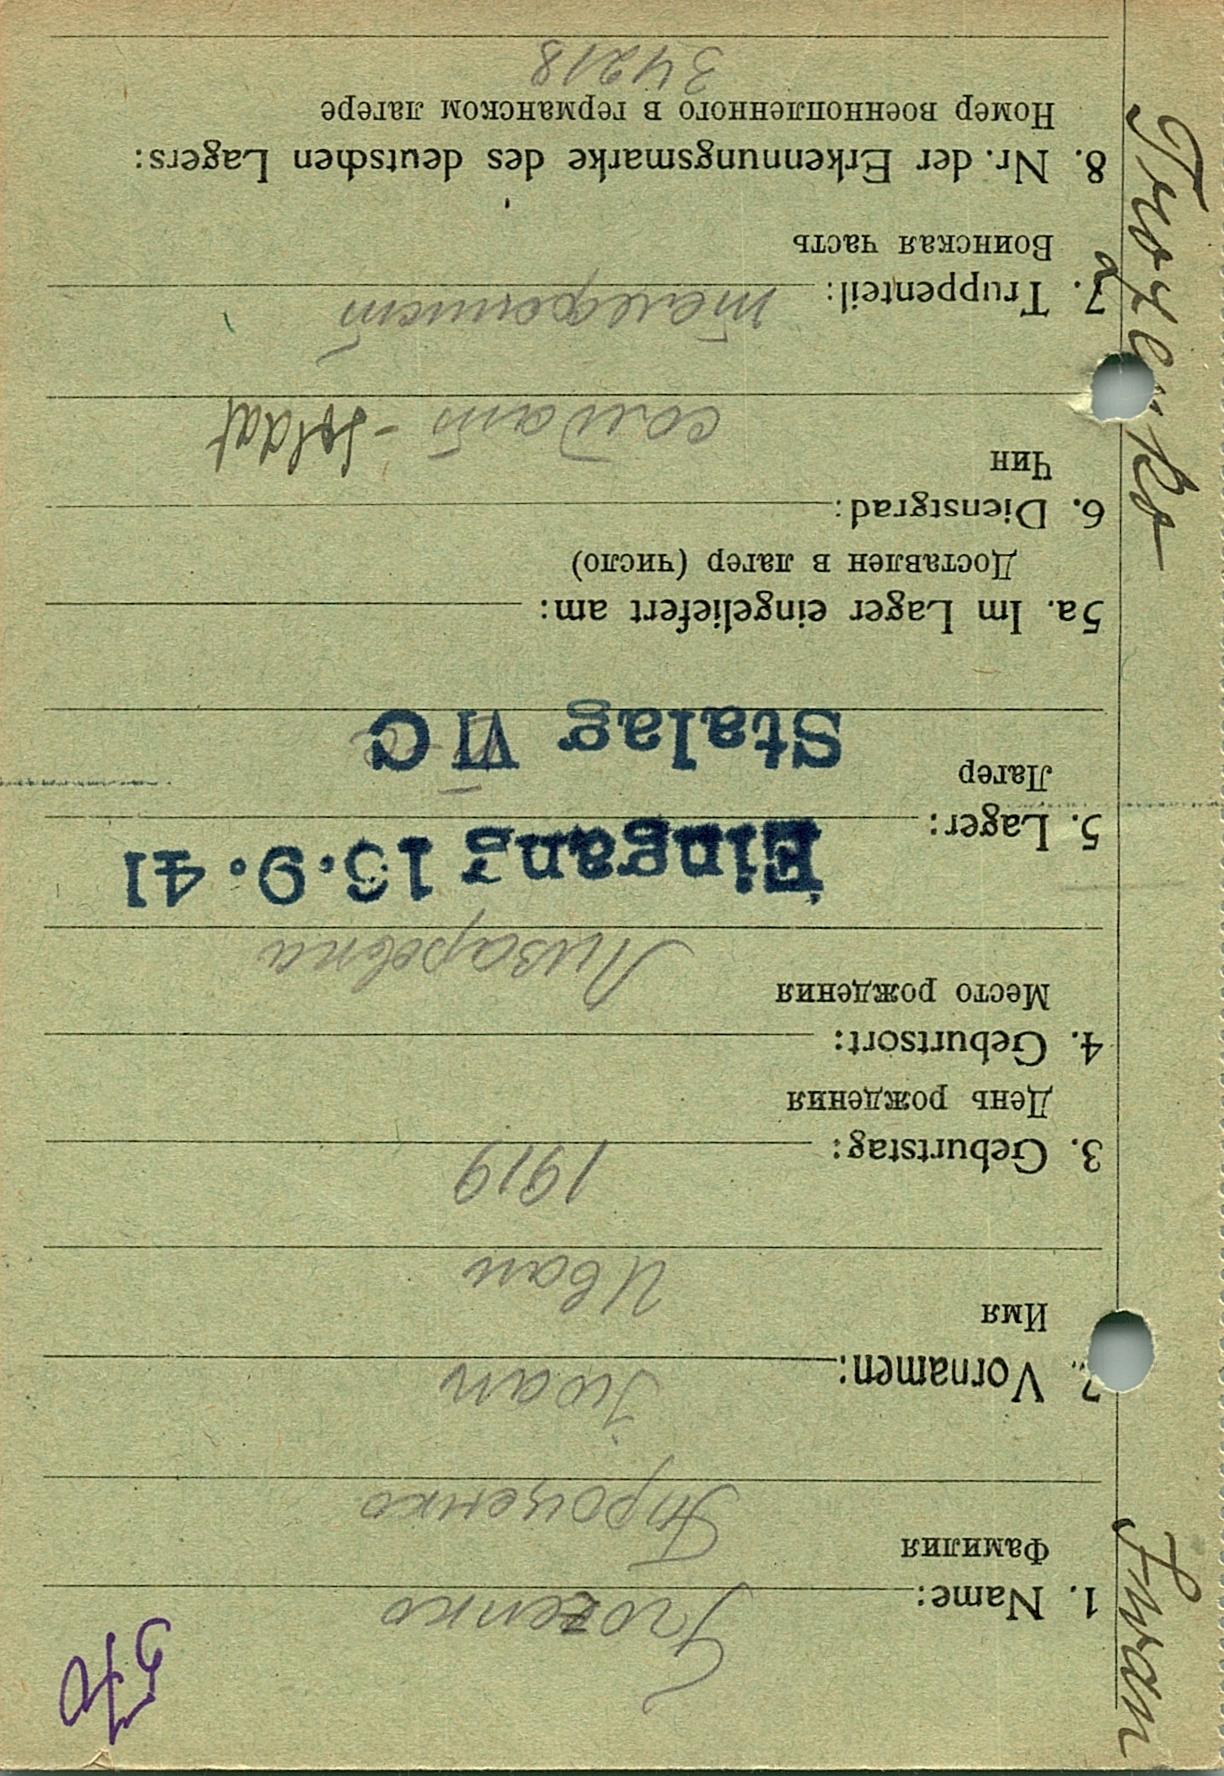 570
1. Name: Trozenko
Фамилия Троценко
2. Vornamen: Iwan
Имя Иван
3. Geburtstag: 1919
День рождения
4. Geburtsort:
Место рождения Лизаревка
Eingang 13.9.41
5. Lager:
Лагер
Stalag VI C
5a. Im Lager eingeliefert am:
Доставлен в лагер (число)
6. Dienstgrad:
Чин
солдат - Soldat
7. Truppenteil: телефонист
Воинская часть
8. Nr. der Erkennungsmarke des deutschen Lagers:
Номер военнопленного в германском лагере
34218
Trozenko Iwan